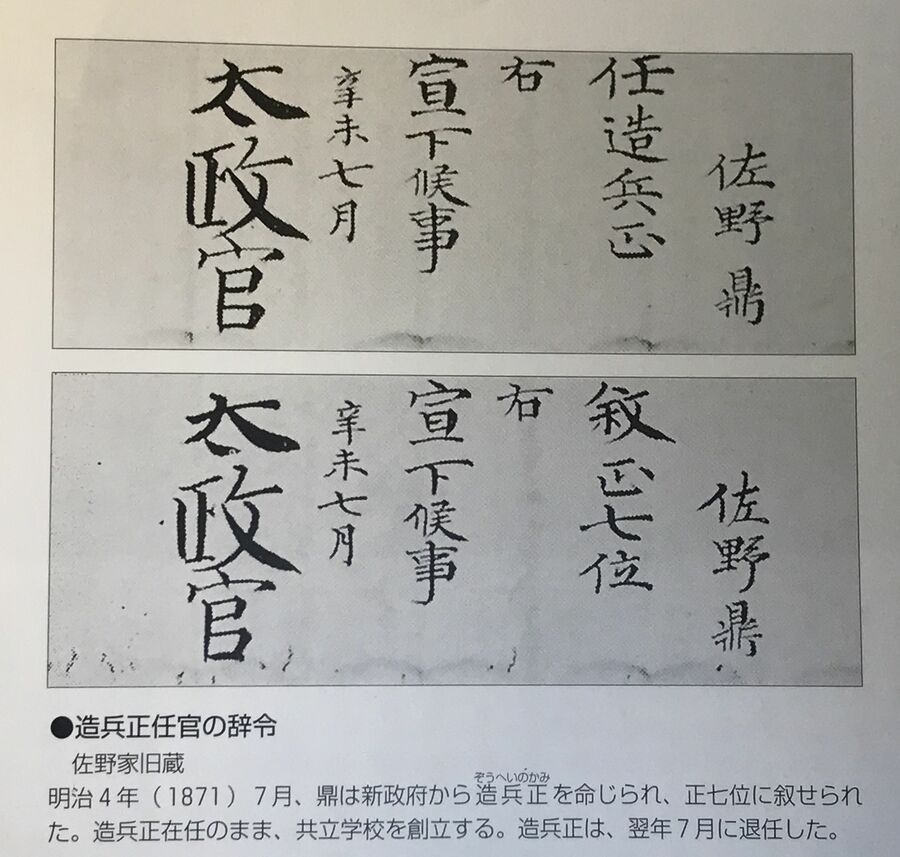 佐野鼎
任造兵正
右
宣下候事
辛未七月
太政官
佐野鼎
叙正七位
右
宣下候事
辛未七月
太政官
●造兵正任官の辞令
佐野家旧蔵
ぞうへいのかみ
明治4年（1871）7月、鼎は新政府から造兵正を命じられ、正七位に叙せられ
た。造兵正在任のまま、共立学校を創立する。造兵正は、翌年7月に退任した。